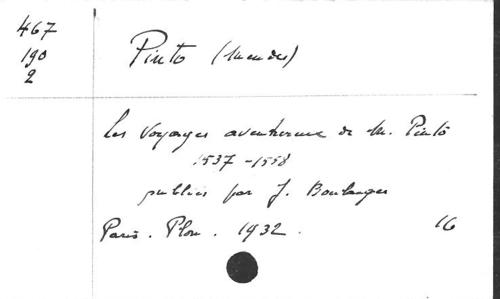 467
190
2
Pinto (Mendes)
Les Voyages aventureux de M. Pinto
1537-1558
publiés par J. Boulanger
Paris. Plon. 1932. 16